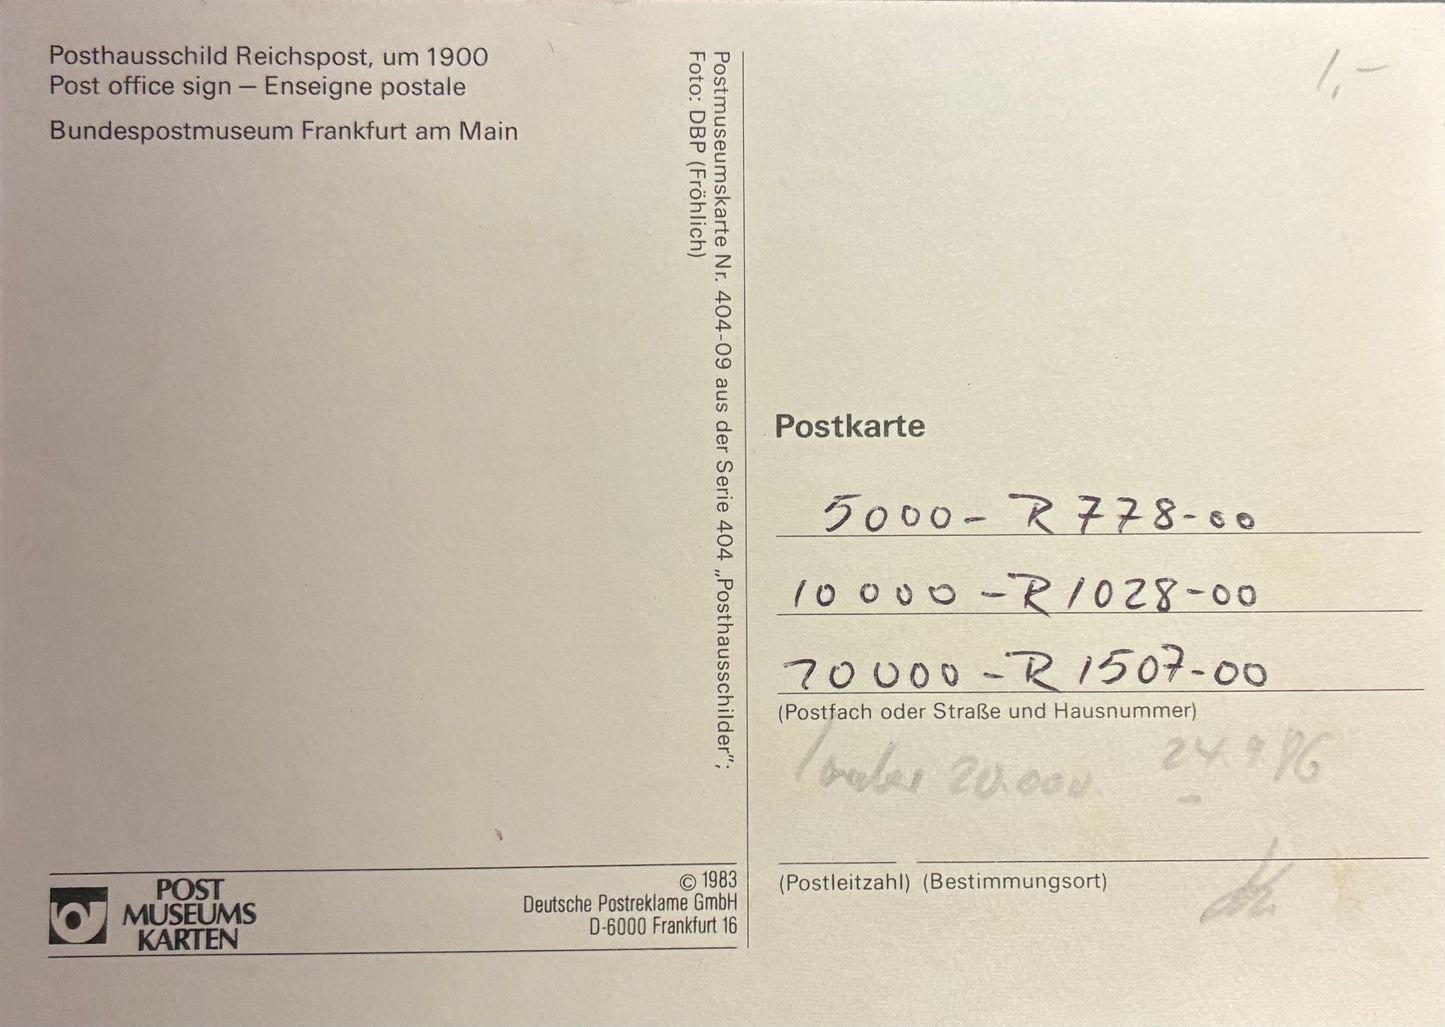 Posthausschild Reichspost, um 1900
Post office sign – Enseigne postale
Bundespostmuseum Frankfurt am Main
Postmuseumskarte Nr. 404-09 aus der Serie 404 „Posthausschilder";
Foto: DBP (Fröhlich)
POST
MUSEUMS
KARTEN
© 1983
Deutsche Postreklame GmbH
D-6000 Frankfurt 16
1,–
Postkarte
5000 – R 778-00
10 000 – R 1028-00
20 000 – R 1507-00
(Postfach oder Straße und Hausnummer)
20.000. 24.9.86
(Postleitzahl) (Bestimmungsort)